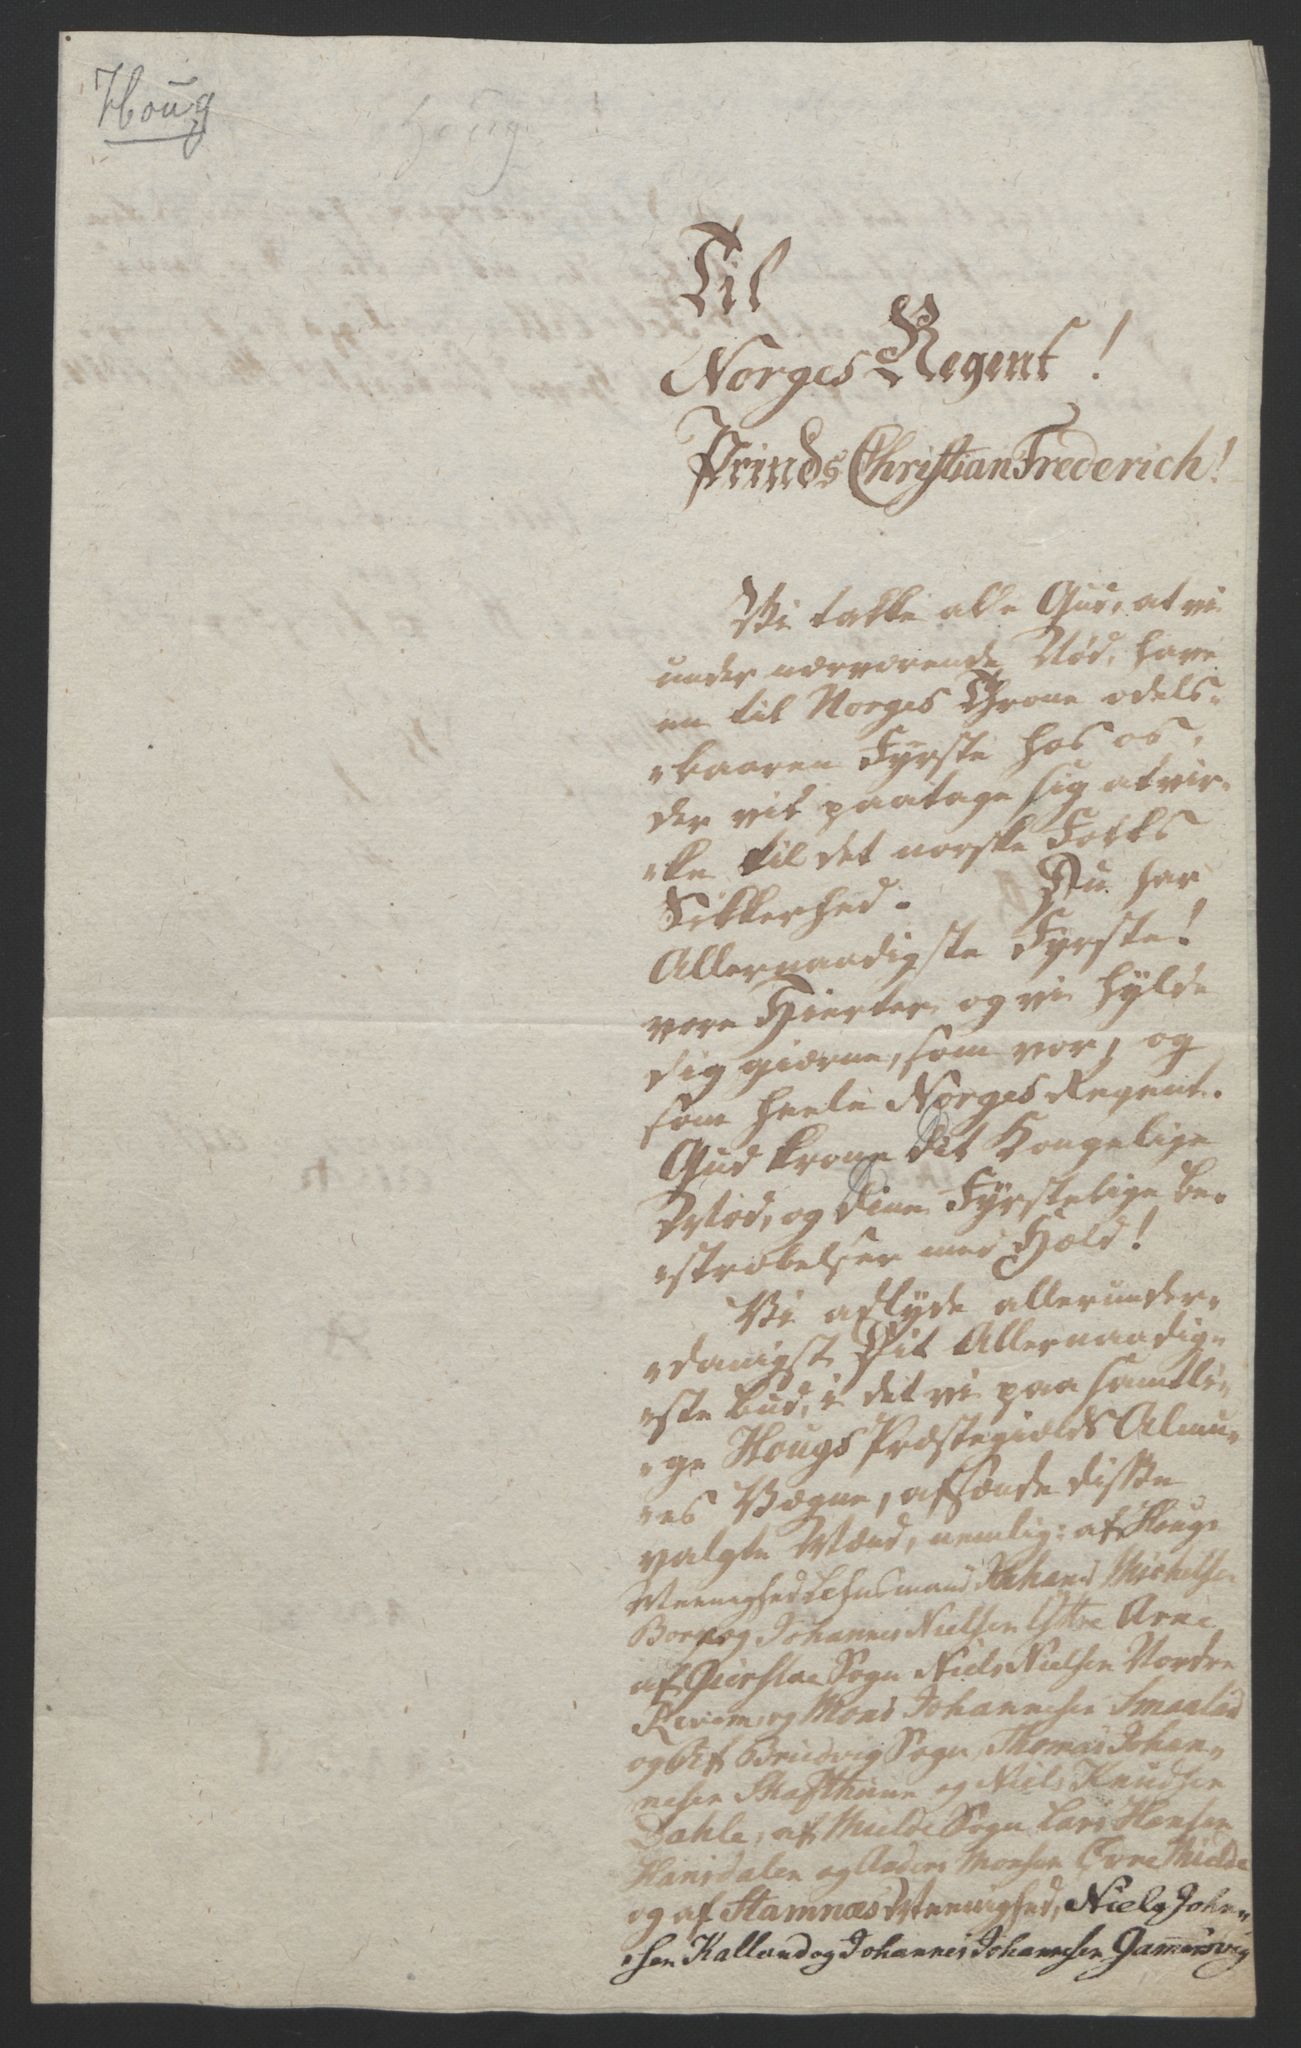 Houg
Til
Norges Regent!
Prinds Christian Frederich!
Vi takke alle Gud, at vi
under nærværende Nød, have
en til Norges Throne odels-
baaren Fyrste hos os,
der vil paatage sig at vir-
ke til det norske Folks
Sikkerhed. Du har
Allernaadigste Fyrste!
vore Hierter, og vi hylde
dig gierne, som vor, og
som heele Norges Regent.
Gud krone dit Kongelige
Mod, og dine Fyrstelige be-
stræbelser med Held!
Vi adlyde allerunder-
danigst Dit Allernaadig-
ste bud, i det vi paa samtli-
ge Hougs Præstegields Almu-
es Vægne, afsænde disse
valgte Mænd, nemlig: af Houge
Meenighed Lehnsmand Johannes Michelsen
Borge og Johannes Nielsen Østre Arne
af Gierstae Sogn Niels Nielsen Nordre
Reviem og Mons Johannesen Smaaland
og Af Brudvig Sogn, Thomas Johan-
nesen Skafthune og Niels Knudsen
Dahle, af Mielde Sogn Lars Hansen
Hansdalen og Anders Monsen Øvre Mielde
og af Stamnæs Meenighed, Niels John-
sen Kalland og Johannes Johannesen Gammersvig